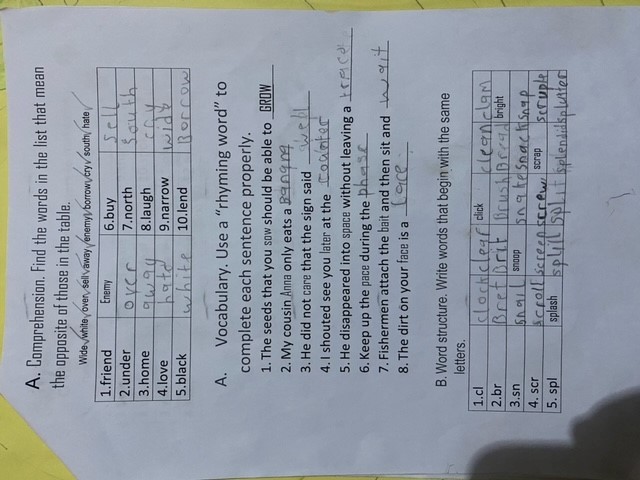 A. Comprehension. Find the words in the list that mean
the opposite of those in the table.
Wide/white/over/sell/away/enemy/borrow/cry/south/hate
1.friend Enemy 6.buy sell
2.under over 7.north south
3.home away 8.laugh cry
4.love hate 9.narrow wide
5.black white 10.lend Borrow
A. Vocabulary. Use a "rhyming word" to
complete each sentence properly.
1. The seeds that you sow should be able to GROW
2. My cousin Anna only eats a banana
3. He did not care that the sign said well
4. I shouted see you later at the counter
5. He disappeared into space without leaving a
6. Keep up the pace during the phase
7. Fishermen attach the bait and then sit and wait
8. The dirt on your face is a
B. Word structure. Write words that begin with the same
letters.
1.cl clock clear click clean clam
2.br Bret Brit Brush Bread bright
3.sn snail snoop snake snack snap
4. scr scroll screen screw scrap scruple
5. spl splash spill split splendid splutter